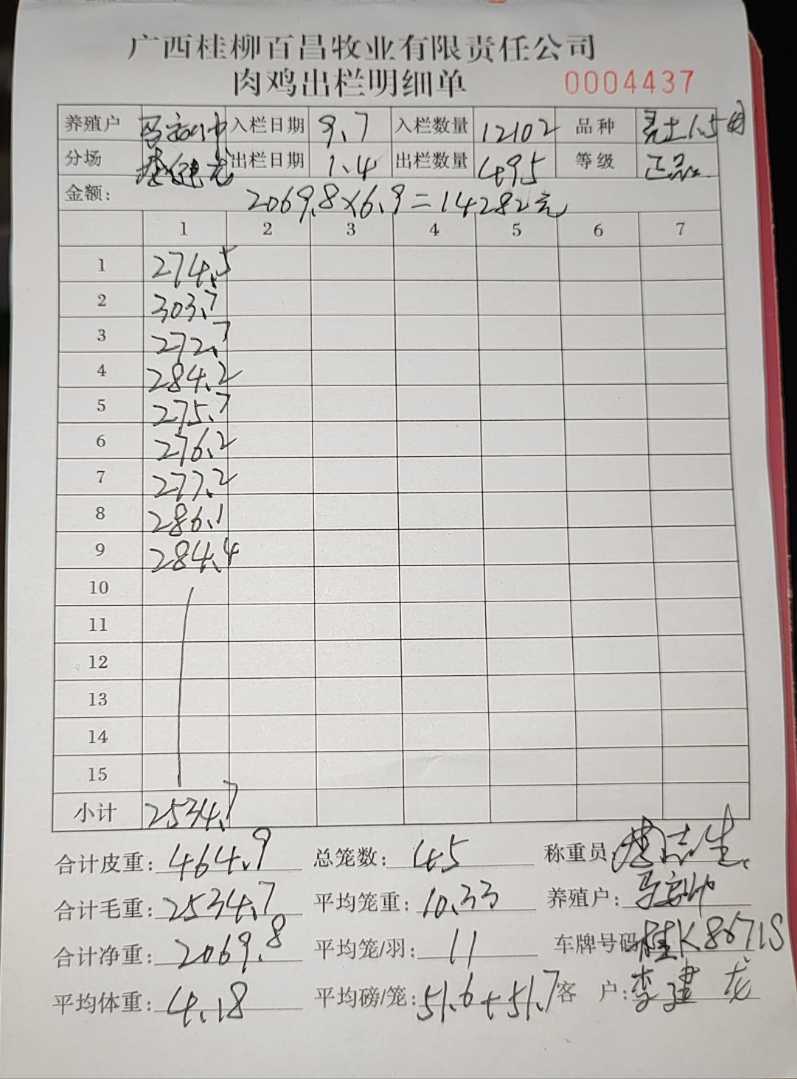 广西桂柳百昌牧业有限责任公司
肉鸡出栏明细单 0004437
养殖户 入栏日期 9.7 入栏数量 12102 品种 土1.5
分场 李建龙 出栏日期 1.4 出栏数量 495 等级 正品
金额: 2069.8×6.9=14282元
1 2 3 4 5 6 7
1 274.5
2 303.7
3 272.7
4 284.2
5 275.7
6 276.2
7 277.2
8 286.1
9 284.4
10
11
12
13
14
15
小计 2534.7
合计皮重: 464.9 总笼数: 45 称重员: 志生
合计毛重: 2534.7 平均笼重: 10.33 养殖户:
合计净重: 2069.8 平均笼/羽: 11 车牌号码 桂K8671S
平均体重: 4.18 平均磅/笼: 51.6+51.7 客 户: 李建龙